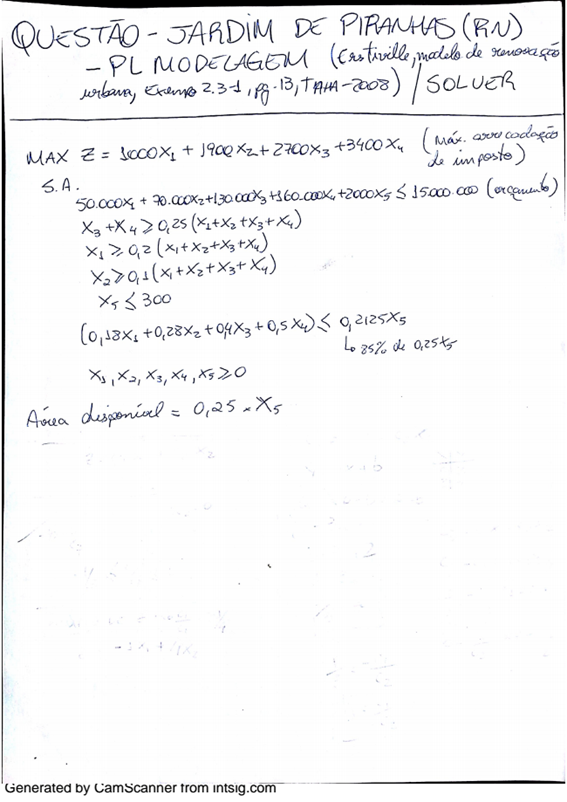 QUESTÃO - JARDIM DE PIRANHAS (RN)
- PL MODELAGEM (Erstiville, modelo de renovação
urbana, Exemplo 2.3-1, pg. 13, TAHA-2008) / SOLVER
MAX Z = 1000X₁ + 1900X₂ + 2700X₃ + 3400X₄ (Máx. arrecadação
de imposto)
S.A.
50.000X₁ + 70.000X₂ + 130.000X₃ + 160.000X₄ + 2000X₅ ≤ 15.000.000 (orçamento)
X₃ + X₄ ≥ 0,25 (X₁ + X₂ + X₃ + X₄)
X₁ ≥ 0,2 (X₁ + X₂ + X₃ + X₄)
X₂ ≥ 0,1 (X₁ + X₂ + X₃ + X₄)
X₅ ≤ 300
(0,18X₁ + 0,28X₂ + 0,4X₃ + 0,5X₄) ≤ 0,2125X₅
↳ 85% de 0,25X₅
X₁, X₂, X₃, X₄, X₅ ≥ 0
Área disponível = 0,25 * X₅
Generated by CamScanner from intsig.com